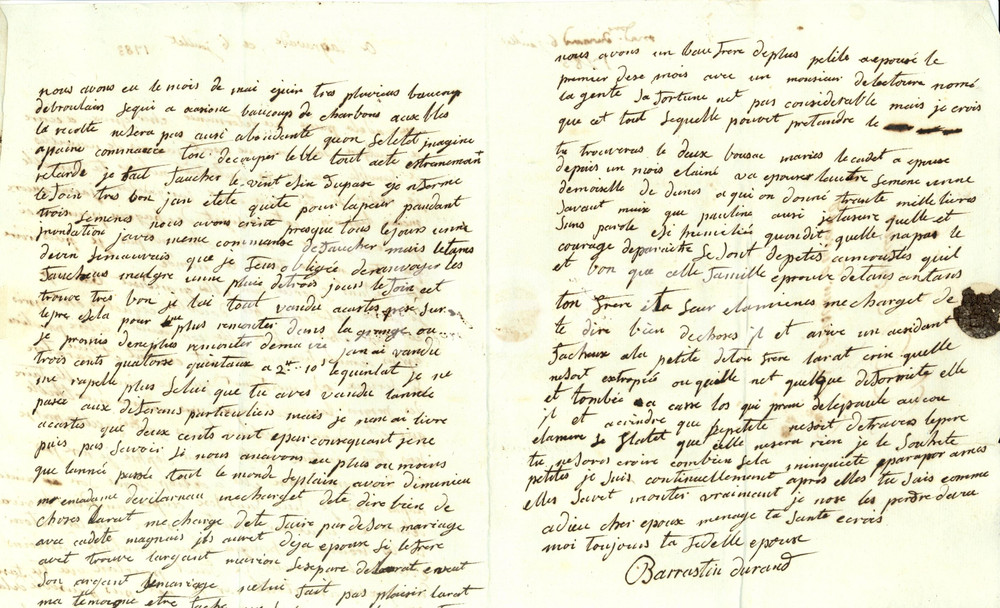 nous avons eu le mois de mai ejuin tres pluvius baucoup
debroulars sequi a ocasione baucoups de charbons aux bles
la recolte nesera pas ausi abondante quon seletet imagine
apaine commance ton decouper leble tout acte
retarde je fait faucher le vint
le foin tres bon jan etete quite pour lapeur pandant
trois semenes nous avons crint presque tous lejours unne
inondation javis meme commanse defaucher mais letams
devin semauvais que je feus obligee deranvoyer les
faucheus malgre unne pluie detrois jours le foin et
trouve tres bon je lai tout vandu acartes pres sur
lepre esela pour ne plus remonter dans la grange ou
je promis deneplus remonter dema vie jan ai vandu
trois cents quatorse quintaux a 2tt 10s lequintal je ne
me rapelle plus selui que tu aves vandu lannee
pasee aux diferans particuliers mais je nan ai livre
acartes que deux cents vint epar consequant jene
puis pas savoir si nous anavons eu plus ou moins
que lannee pasee tout le monde seplain avoir diminieu
mr emadame devilarnau mecharget dete dire bien de
choses larat me charge dete faire pardeson mariage
avec cadete magnais ils auret deja epouse si lefrere
avet trouve largant marion sesepare delarat enveut
son argant lemariage nelui fait pas plaisir larat
ma temoigne etre fache
nous avons un bau frere deplus petite aepouse le
premier dese mois avec un monsieur delectoure nomé
la gente sa fortune net pas considerable mais je crois
que cet tout sequelle pouvoit pretandre le
tu trouveras le deux bousac maries lecadet a epouse
depuis un mois elaine va epouser lautre semene unne
demoiselle de dunes a qui on donne trante mille livres
savaut muix que pauline ausi jelasure quelle et
sans parole esi humiliee quondit quelle napas le
courage deparaitre sesont depetits camoustes quil
et bon que celle famille eprouve detans antans
ton frere ta seur elamienes mecharget de
te dire bien dechoses il et arive un acsidant
facheux ala petite deton frere larat crin quelle
nesoit extropiée ou quelle net quelque deformite elle
et tombée sa carse los qui pran delepaule aucou
il et acrindre que lapetite nesoit detravers lepere
elamere se flatet que celle nesera rien je le souhete
tu nesorois croire combien sela minquiete eparapor ames
petites je suis continuellement apres elles tu sais comme
elles savet monter vraimant je nose les perdre deveu
adieu cher epoux menage ta sante ecrois
moi toujours ta fidelle epouse
Barrastin durand